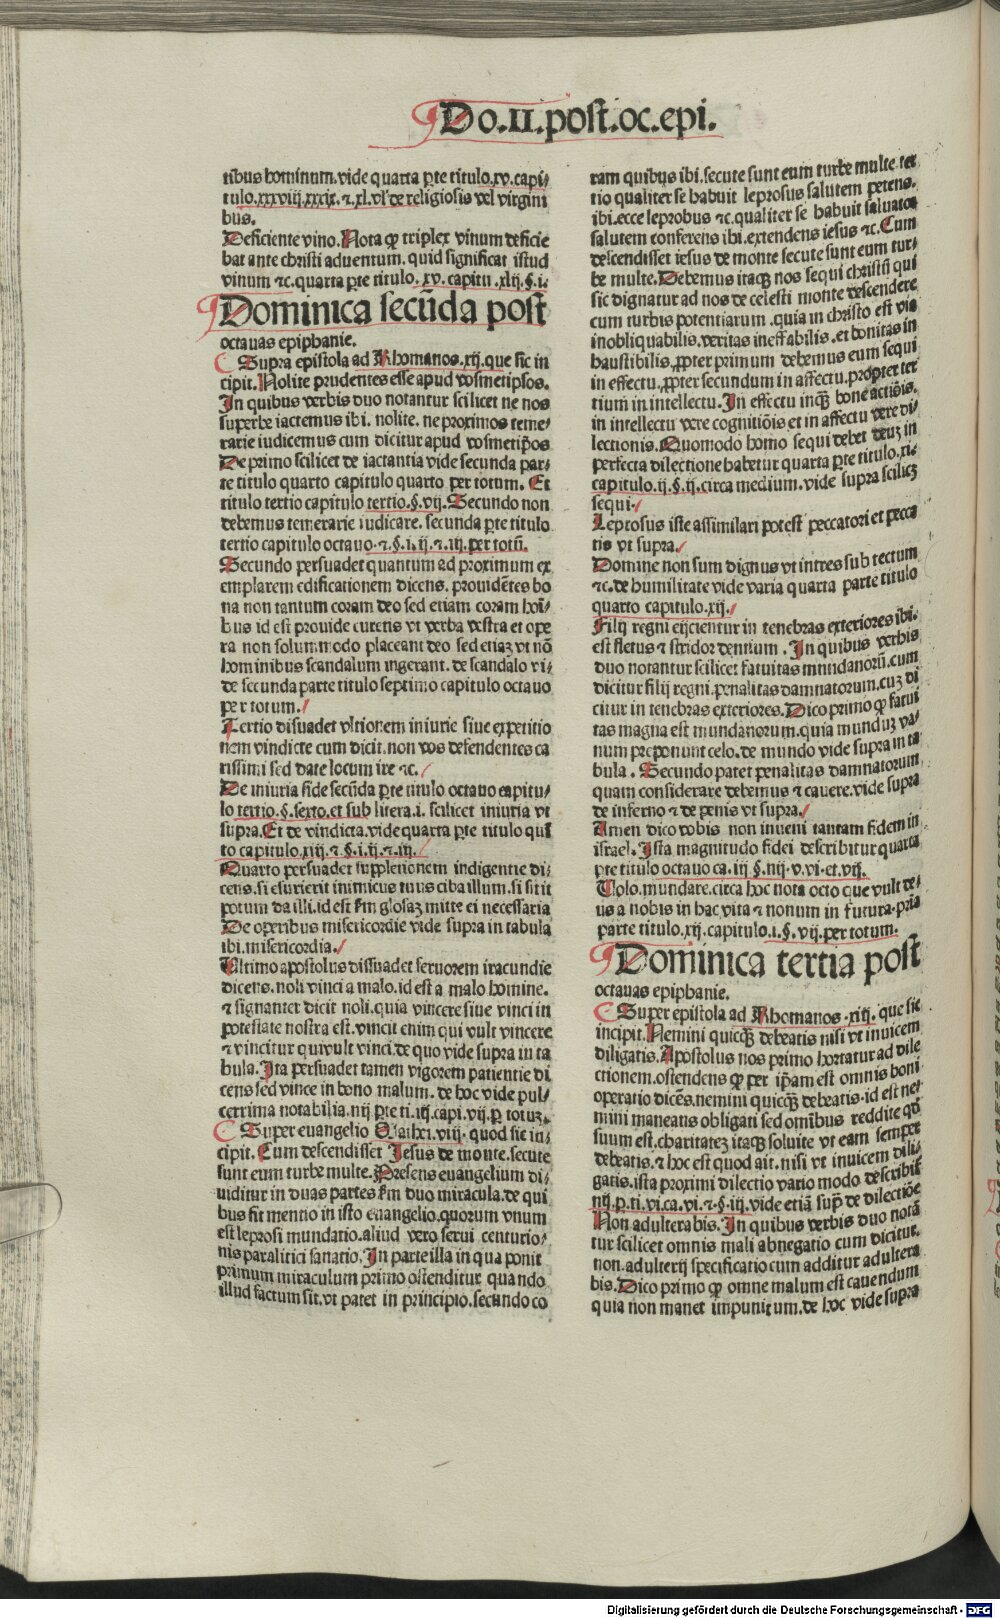 Do.II.post.oc.epi.
tibus hominum. vide quarta p̲te titulo.xv.capi⸗
tulo.xxxviij.xxxix.⁊.xl.vl' de religiosis vel virgini
bus.
Deficiente vino. Nota qꝙ triplex vinum deficie
bat ante christi aduentum. quid significat istud
vinum ⁊c. quarta p̲te titulo. xv. capitu .xlij.§.i.
Dominica secūda post
octauas epiphanie.
Supra epistola ad Rhomanos.xij. que sic in
cipit. Nolite prudentes esse apud vosmetipsos.
In quibus verbis duo notantur scilicet ne nos
superbe iactemus ibi. nolite. ne proximos teme⸗
rarie iudicemus cum dicitur apud vosmetip̄os
De primo scilicet de iactantia vide secunda par⸗
te titulo quarto capitulo quarto per totum. Et
titulo tertio capitulo tertio.§.vij. Secundo non
debemus temerarie iudicare. secunda p̲te titulo
tertio capitulo octauo.⁊.§.i.ij.⁊.iij.per totū.
Secundo persuadet quantum ad proximum ex
emplarem edificationem dicens. prouidētes bo
na non tantum coram deo sed etiam coram hoī⸗
bus id est prouide curetis vt verba vestra et ope
ra non solummodo placeant deo sed etiaꝫ vt nō
hominibus scandalum ingerant. de scandalo vi⸗
de secunda parte titulo septimo capitulo octauo
per totum.
Tertio disuadet vltionem iniurie siue expetitio
nem vindicte cum dicit. non vos defendentes ca
rissimi sed date locum ire ⁊c.
De iniuria side secūda p̲te titulo octauo capitu⸗
lo tertio.§.sexto.et sub litera.i. scilicet iniuria vt
supra. Et de vindicta. vide quarta p̲te titulo quī
to capitulo.xiij.⁊.§.i.ij.⁊.iij.
Quarto persuadet suppletionem indigentie di⸗
cens. si esurierit inimicus tuus ciba illum. si sitit
potum da illi. id est fm̄ glosaꝫ mitte ei necessaria
De operibus misericordie vide supra in tabula
ibi. misericordia.
Ultimo apostolus dissuadet feruorem iracundie
dicens. noli vinci a malo. id est a malo homine.
⁊ signanter dicit noli. quia vincere siue vinci in
potestate nostra est. vincit enim qui vult vincere
⁊ vincitur qui vult vinci. de quo vide supra in ta
bula. Ita persuadet tamen vigorem patientie di
cens sed vince in bono malum. de hoc vide pul⸗
cerrima notabilia.iiij p̲te ti.iij.capi.vij.p̲ totuꝫ.
Super euangelio Mathei.viij. quod sic in⸗
cipit. Cum descendisset Jesus de monte. secute
sunt eum turbe multe. Presens euangelium di⸗
uiditur in duas partes fm̄ duo miracula. de qui
bus fit mentio in isto euangelio. quorum vnum
est leprosi mundatio. aliud vero serui centurio⸗
nis paralitici sanatio. In parte illa in qua ponit
primum miraculum primo ostenditur quando
illud factum sit. vt patet in principio. secundo co
ram quibus ibi. secute sunt eum turbe multe. ter
tio qualiter se habuit leprosus salutem petens.
ibi. ecce leprobus ⁊c. qualiter se habuit saluator
salutem conferens ibi. extendens iesus ⁊c. Cum
descendisset iesus de monte secute sunt eum tur⸗
be multe. Debemus itaqꝫ nos sequi christū qui
sic dignatur ad nos de celesti monte descendere
cum turbis potentiarum. quia in christo est via
inobliquabilis. veritas ineffabilis. et bonitas in
haustibilis. p̲pter primum debemus eum sequi
in effectu. p̲pter secundum in affectu. propter ter
tium in intellectu. In effectu inqꝫ bone actiōis.
in intellectu vere cognitiōis et in affectu vere di⸗
lectionis. Quomodo homo sequi debet deuꝫ in
perfecta dilectione habetur quarta p̲te titulo.xi.
capitulo.ij.§.ij. circa medium. vide supra scilicꝫ
sequi.
Leprosus iste assimilari potest peccatori et pecca
tis vt supra.
Domine non sum dignus vt intres sub tectum
⁊c. de humilitate vide varia quarta parte titulo
quarto capitulo.xij.
Filij regni eijcientur in tenebras exteriores ibi.
est fletus ⁊ stridor dentium . In quibus verbis
duo notantur scilicet fatuitas mnndanorū. cum
dicitur filij regni. penalitas damnatorum. cuꝫ di
citur in tenebras exteriores. Dico primo qꝙ fatui
tas magna est mundanorum. quia munduꝫ va⸗
num preponunt celo. de mundo vide supra in ta
bula . Secundo patet penalitas damnatorum
quam considerare debemus ⁊ cauere. vide supra
de inferno ⁊ de penis vt supra.
Amen dico vobis non inueni tantam fidem in
israel. Ista magnitudo fidei describitur quarta
p̲te titulo octauo ca.iij §.iiij.v.vi.et.vij.
Uolo. mundare. circa hoc nota octo que vult de⸗
us a nobis in hac vita ⁊ nonum in futura. pr̄ia
parte titulo.xij.capitulo.i.§.vij.per totum.
Dominica tertia post
octauas epiphanie.
Super epistola ad Rhomanos.xiij. que sic
incipit. Nemini quicqꝫ debeatis nisi vt inuicem
diligatis. Apostolus nos primo hortatur ad dile
ctionem. ostendens qꝙ per ip̄am est omnis boni
operatio dicēs. nemini quicqꝫ debeatis. id est ne⸗
mini maneatis obligati sed omībus reddite qđ
suum est. charitateꝫ itaqꝫ soluite vt eam semper
debeatis. ⁊ hoc est quod ait. nisi vt inuicem dili⸗
gatis. ista proximi dilectio vario modo describiť
iiij.p.ti.vi.ca.vi.⁊.§.iij. vide etiā sup̄ de dilectiōe
Non adulterabis. In quibus verbis duo notā
tur scilicet omnis mali abnegatio cum dicitur.
non. adulterij specificatio cum additur adultera
bis. Dico primo qꝙ omne malum est cauendum
quia non manet impunitum. de hoc vide supra
Digitalisierung gefördert durch die Deutsche Forschungsgemeinschaft - DFG